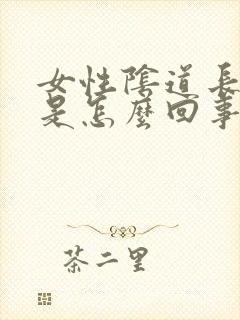 女性陰道長
是怎麼回事
茶二里